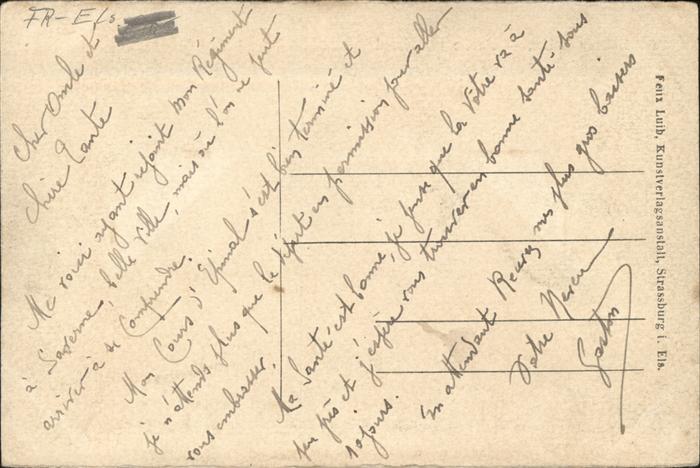 FR-Els.
Cher Oncle et
chère Tante
Me voici ayant rejoint mon Régiment
à Saverne, belle ville, mais où l'on ne peut
arriver à se Comprendre.
Mon Cours d'Epinal s'est bien terminé et
je n'attends plus que le départ en permission pour aller
vous embrasser.
Ma Santé est bonne, je pense que la Vôtre va à
peu près et j'espère vous trouver en bonne santé tous
En attendant Recevez mes plus gros baisers
Votre Neveu
Gaston
Felix Luib, Kunstverlagsanstalt, Strassburg i. Els.